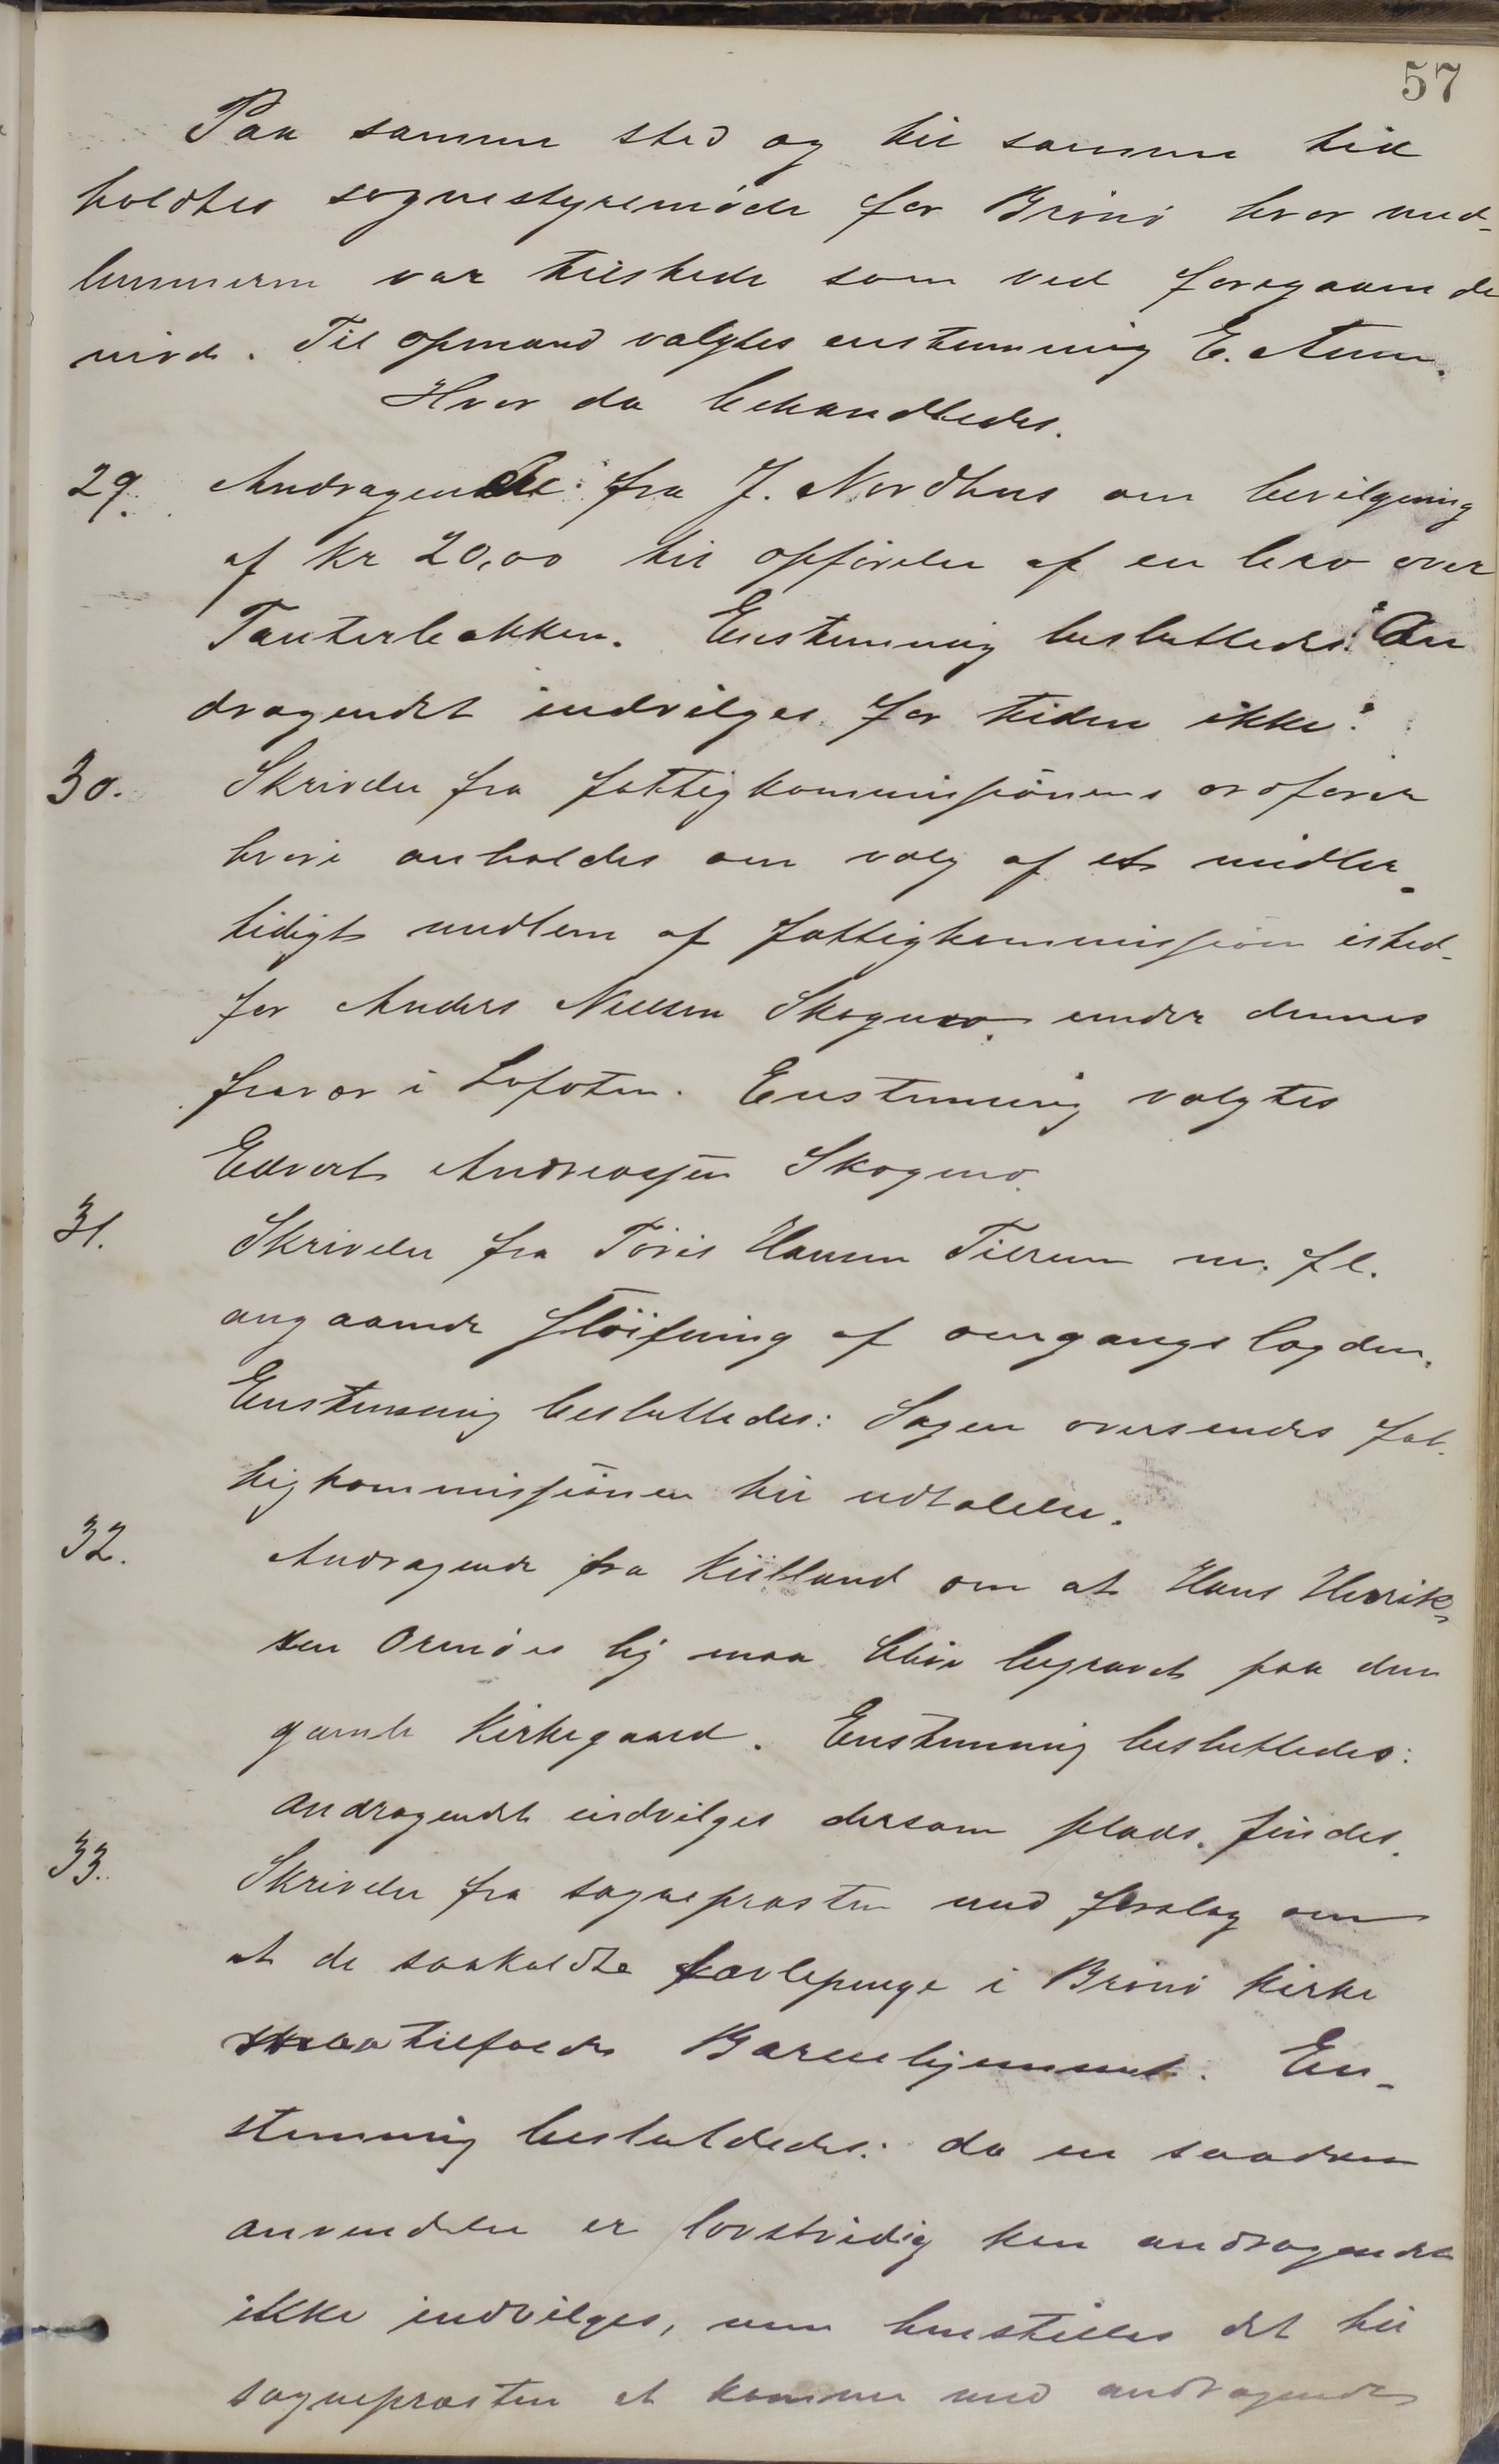 57
Paa samme sted og til samme tid
holdtes sognestyremöde for Brönö hvor med-
lemmerne var tilstede som ved foregaaende
möde. Til opmand valgtes enstemmig E. Aune.
Hvor da behandledes.
29. Andragende fra J. Nordhus om bevilgning
af kr 20,00 til opförelse af en bro over
Tauterbakken. Enstemmig besluttedes: "An
dragendet indvilges for tiden ikke".
30. Skrivelse fra fattigkommissionens ordförer
hvori anholdes om valg af et midler-
tidigt medlem af fattigkommission isted-
for Anders Nielsen Skogmo under dennes
fravær i Lofoten. Enstemmig valgtes
Edvart Andreassen Skogmo.
31. Skrivelse fra Töris Hansen Tilrem m. fl.
angaaende slöifning af omgangslægden.
Enstemmig besluttedes: Sagen oversendes fat-
tigkommissionen til udtalelse.
32. Andragende fra Kiilland om at Hans Henrik-
sen Ormöes lig maa blive begravet paa den
gamle Kirkegaard. Enstemmig besluttedes:
andragendet indvilges dersom plads findes.
33. Skrivelse fra sognepræsten med forslag om
at de saakaldte tavlepenge i Brönö kirke
maa tilfalde Barnehjemmet. En-
stemmig besluttedes: da en saadan
anvendelse er lovstridig kan andragendet
ikke indvilges, men henstilles det til
sognepræsten at komme med andragende